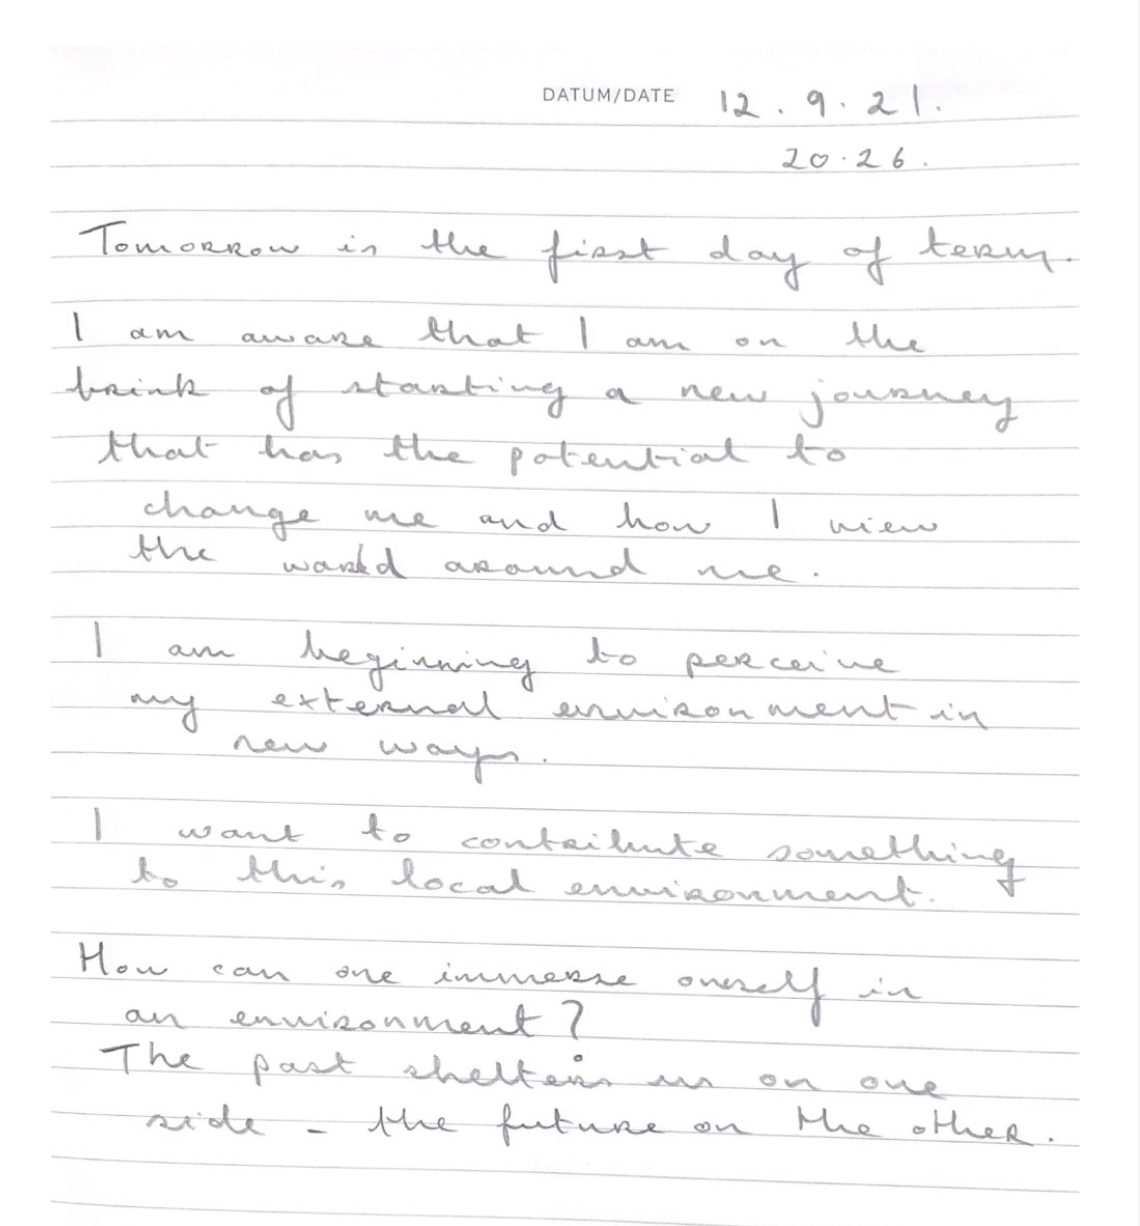 DATUM/DATE 12.9.21.
20.26.
Tomorrow is the first day of term.
I am aware that I am on the
brink of starting a new journey
that has the potential to
change me and how I view
the world around me.
I am beginning to perceive
my external environment in
new ways.
I want to contribute something
to this local environment.
How can one immerse oneself in
an environment?
The past shelters us on one
side - the future on the other.